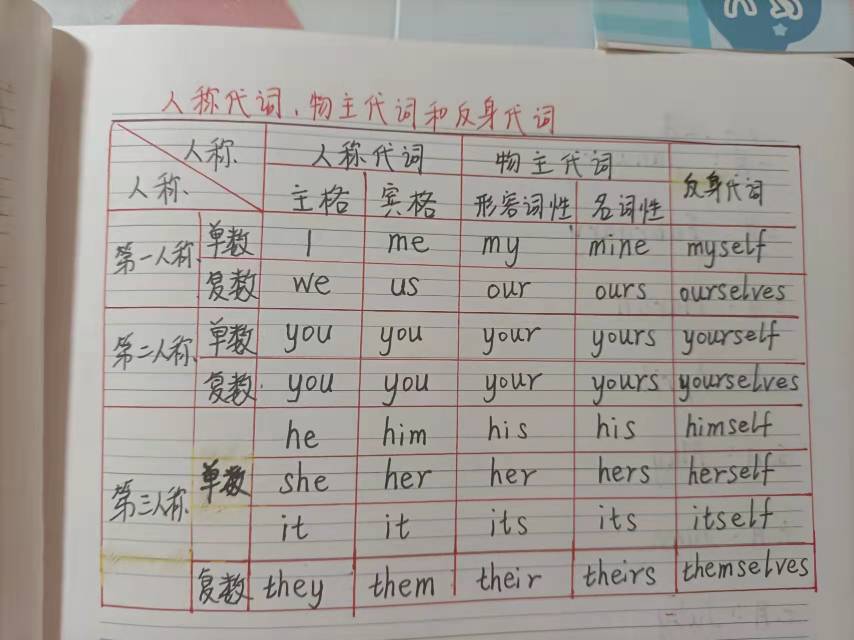 人称代词、物主代词和反身代词
人称 人称代词 物主代词 反身代词
人称 主格 宾格 形容词性 名词性
第一人称 单数 I me my mine myself
复数 we us our ours ourselves
第二人称 单数 you you your yours yourself
复数 you you your yours yourselves
第三人称 单数 he him his his himself
she her her hers herself
it it its its itself
复数 they them their theirs themselves